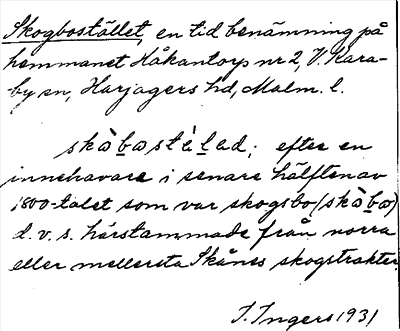 Skogbostället, en tid benämning på
hemmanet Håkantorp nr 2, V. Kara-
by sn, Harjagers hd, Malm. l.
skòbostèlad; efter en
innehavare i senare hälften av
1800-talet som var skogsbo (skòbo)
d.v.s. härstammade från norra
eller mellersta Skånes skogstrakter.
I. Ingers 1931